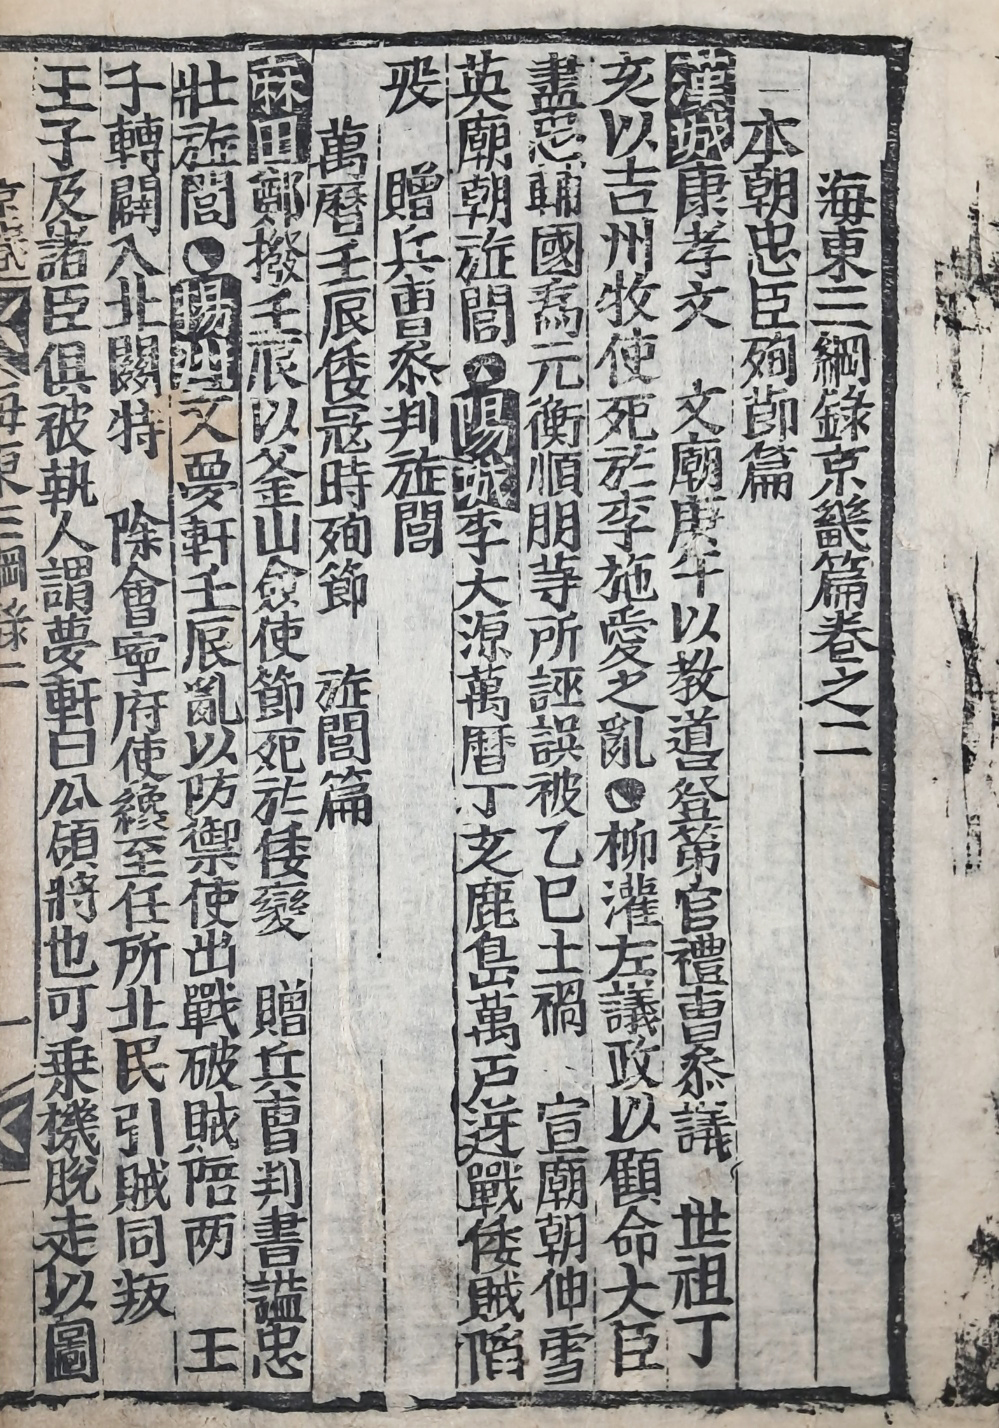 海東三綱錄京畿篇卷之二
本朝忠臣殉節篇
漢城康孝文 文廟庚午以教道登第官禮曹叅議 世祖丁
亥以吉州牧使死於李施愛之亂●柳灌左議政以顧命大臣
盡忠輔國爲元衡順朋等所誣誤被乙巳士禍 宣廟朝伸雪
英廟朝旌閭●陽城李大源萬曆丁亥鹿島萬戶逆戰倭賊陷
歿 贈兵曹叅判旌閭
萬曆壬辰倭冦時殉節 旌閭篇
麻田鄭撥壬辰以釜山僉使節死於倭變 贈兵曹判書謚忠
壯旌閭●陽城文夢軒壬辰亂以防禦使出戰破賊陪两 王
子轉鬪入北關特 除會寧府使纔至任所北民引賊同叛
王子及諸臣俱被執人謂夢軒曰公碩將也可乗機脫走以圖
海東三綱錄二 一